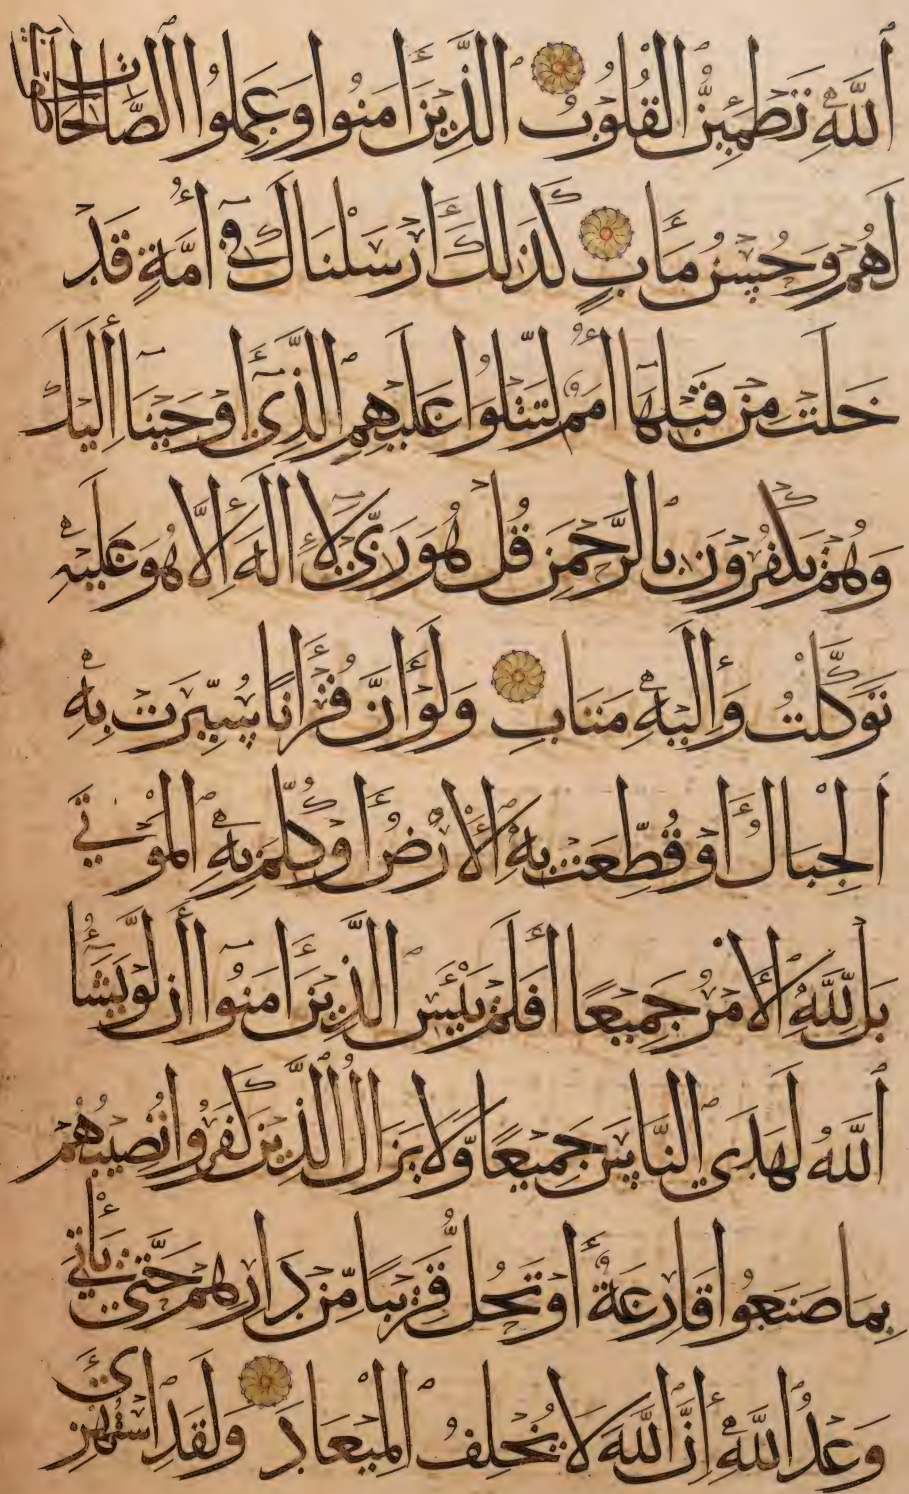 اَللَّهِ تَطْمَئِنُّ الْقُلُوبُ الَّذِينَ اٰمَنُوا وَعَمِلُوا الصَّالِحَاتِ
لَهُمْ وَحُسْنُ مَاٰبٍ كَذٰلِكَ أَرْسَلْنَاكَ فِي أُمَّةٍ قَدْ
خَلَتْ مِنْ قَبْلِهَا أُمَمٌ لِتَتْلُوَا عَلَيْهِمُ الَّذِي أَوْحَيْنَا إِلَيْكَ
وَهُمْ يَكْفُرُونَ بِالرَّحْمٰنِ قُلْ هُوَ رَبِّي لَا إِلٰهَ إِلَّا هُوَ عَلَيْهِ
تَوَكَّلْتُ وَإِلَيْهِ مَتَابِ وَلَوْ أَنَّ قُرْاٰنًا سُيِّرَتْ بِهِ
الْجِبَالُ أَوْ قُطِّعَتْ بِهِ الْأَرْضُ أَوْ كُلِّمَ بِهِ الْمَوْتٰى
بَلْ لِلّٰهِ الْأَمْرُ جَمِيعًا أَفَلَمْ يَيْئَسِ الَّذِينَ اٰمَنُوا أَنْ لَوْ يَشَاءُ
اللَّهُ لَهَدَى النَّاسَ جَمِيعًا وَّلَا يَزَالُ الَّذِينَ كَفَرُوا تُصِيبُهُمْ
بِمَا صَنَعُوا قَارِعَةٌ أَوْ تَحُلُّ قَرِيبًا مِّنْ دَارِهِمْ حَتّٰى يَأْتِيَ
وَعْدُ اللَّهِ إِنَّ اللَّهَ لَا يُخْلِفُ الْمِيعَادَ وَلَقَدِ اسْتُهْزِئَ